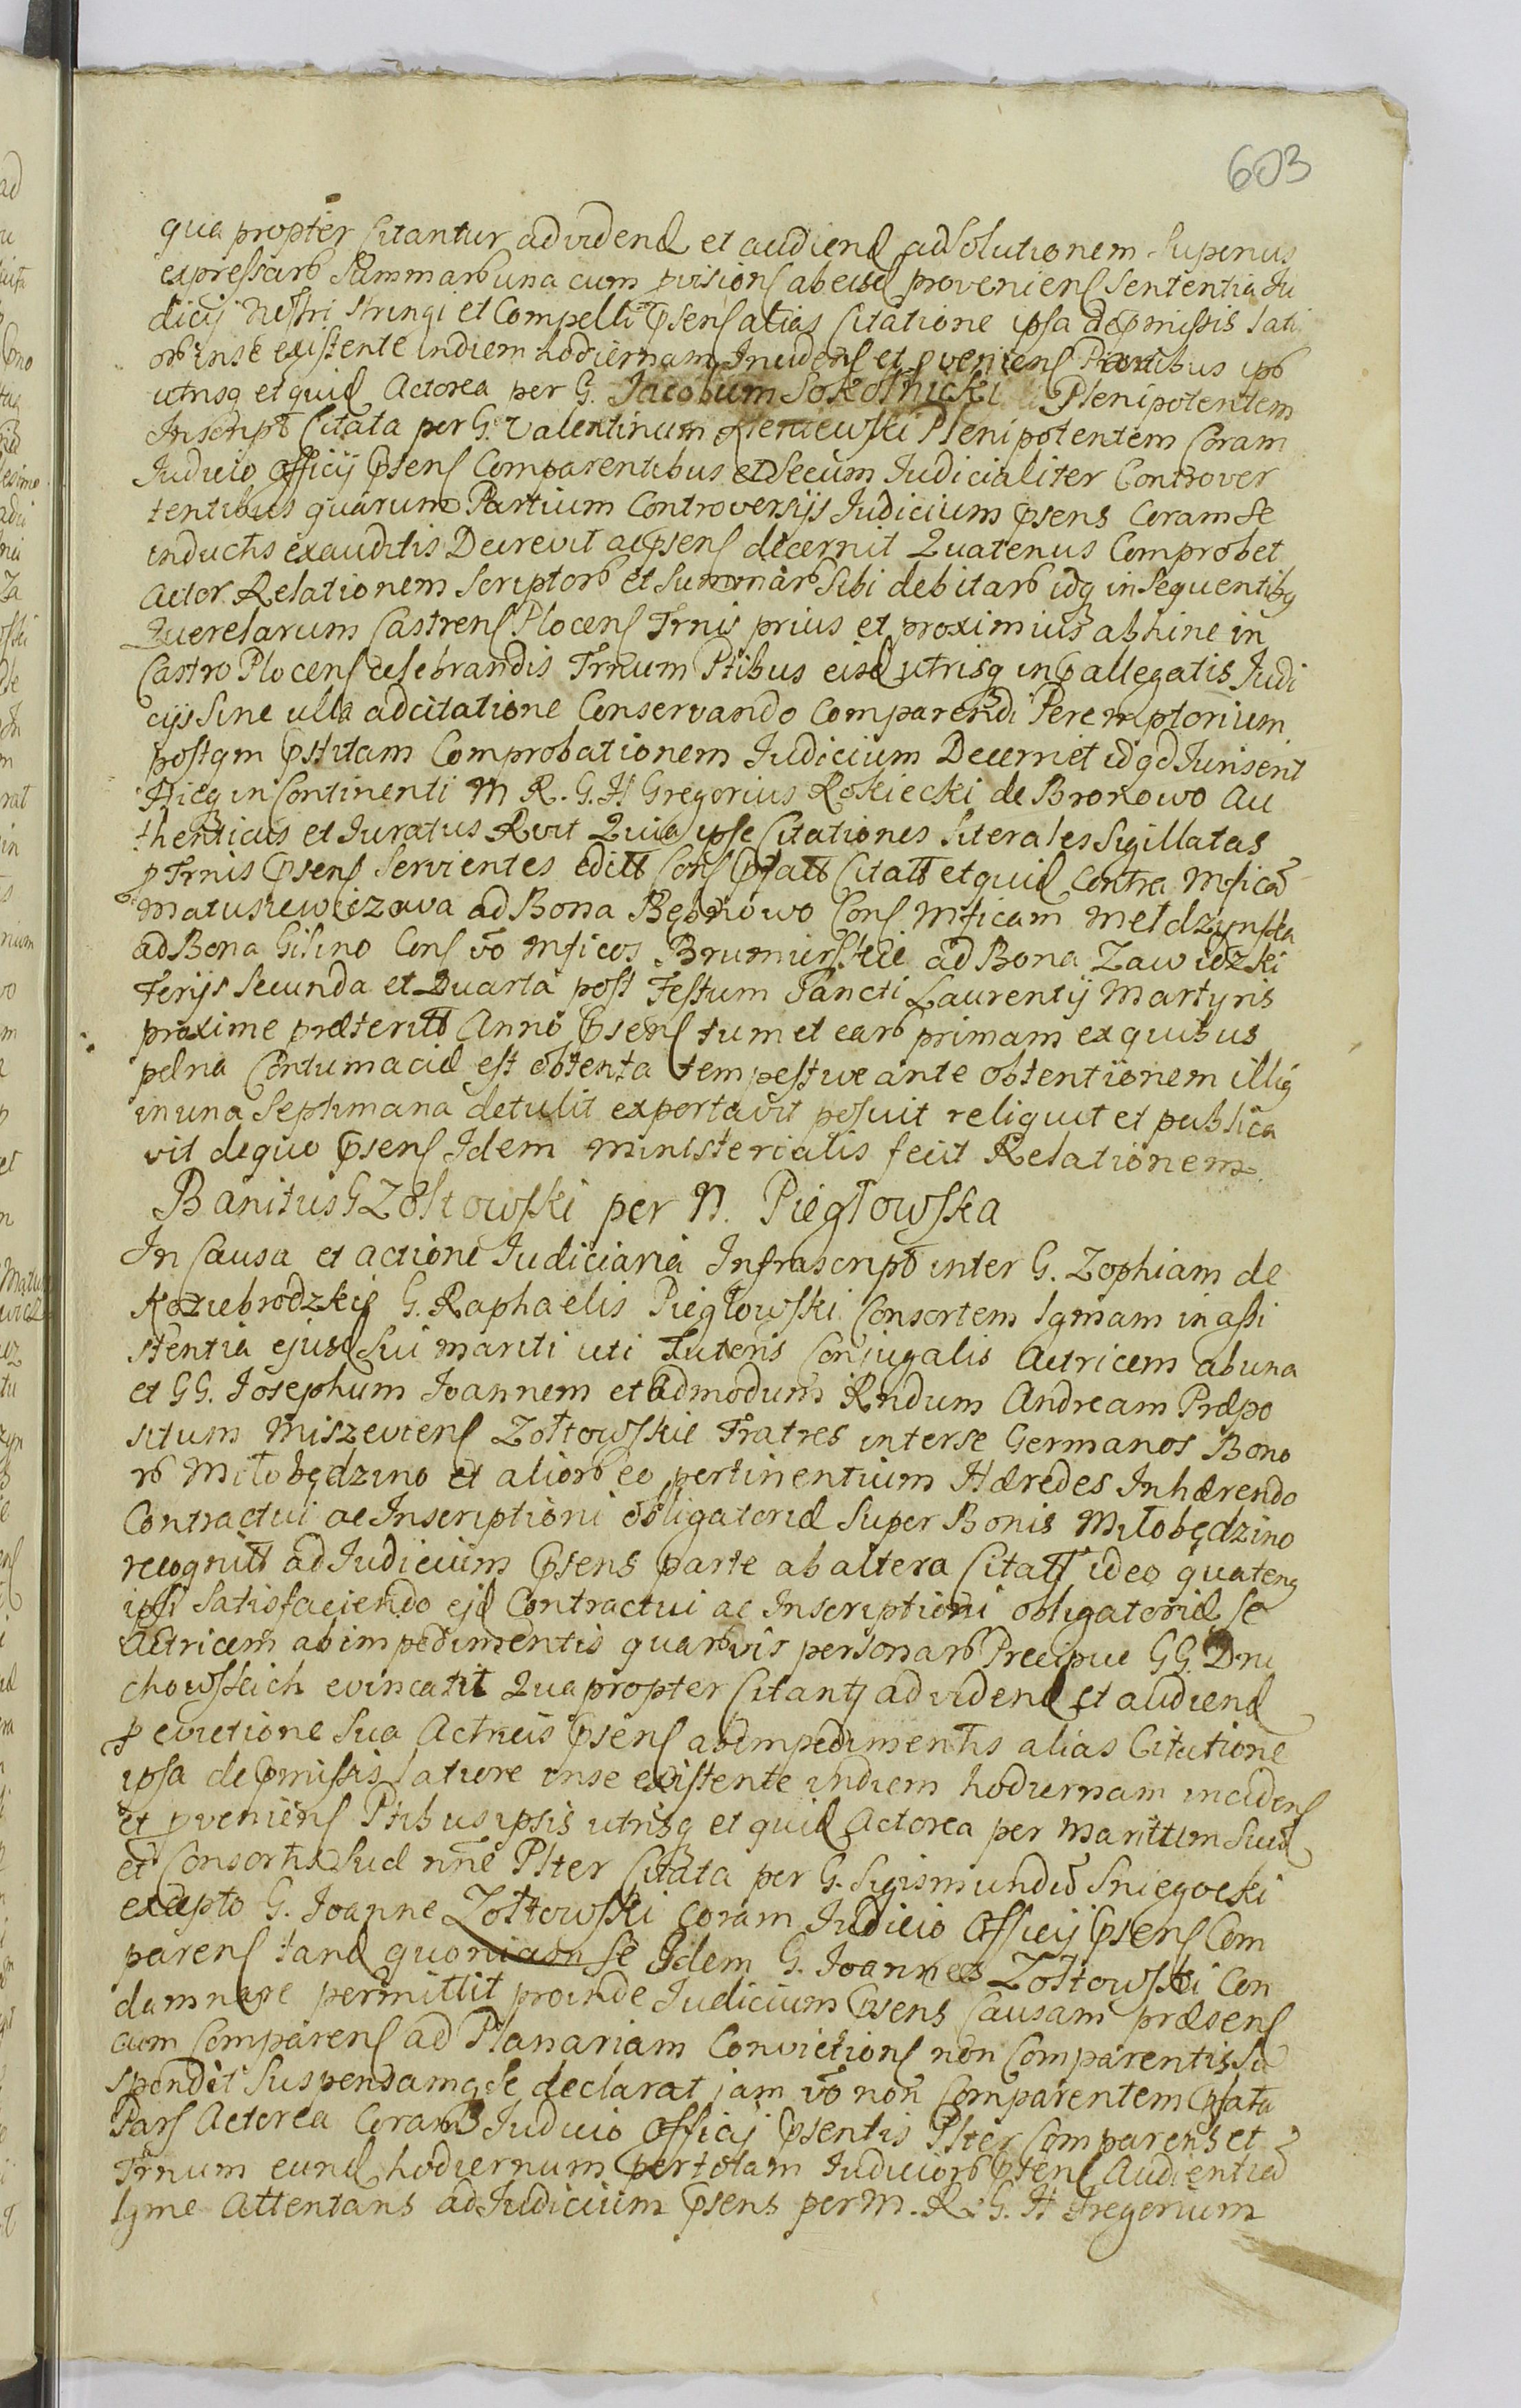 603
qua propter Citantur ad videnḍ et audienḍ ad Solutionem Superius
expressarꝝ Summarꝝ una cum pvisionꝭ ab eisd provenienꝭ Sententia Ju
dicij Nostri Stringi et Compelli Psenꝭ alias Citatione ipsa de Pmissis lati
orꝝ in se existente in diem hodiernam Incidenꝭ et pvenienꝭ Partibus ipꝭ
utrisqꝫ et quid Actorea per G. Jacobum Sokolnicki Plenipotentem
Inscript Citata per G. Valentinum Plenipotentem Coram
Judicio Officij Psenꝭ Comparentibus et Secum Judicialiter Controver
tentibus quarum Partium Controversijs Judicium Psens Coram Se
inductis exauditis Decrevit ac psenꝭ decernit Quatenus Comprobet
Actor Relationem Scriptorꝝ et Summarꝝ Sibi debitarꝝ idqꝫ in Sequentibꝫ
Querelarum Castrenꝭ Plocenꝭ Trnis prius et proximius abhinc in
Castro Plocenꝭ celebrandis Trnum Ptibus eisd utrisqꝫ in P allegatis Judi
cijs Sine ulla adcitatione Conservando Comparendi Peremptorium
post qm Pstitam Comprobationem Judicium Decernet id qd Juris erit
Hicqꝫ in Continenti M R. G. H Gregorius Rokiecki de Bronowo Au
thenticus et Juratus Rvit Quia ipse Citationes literales Sigillatas
p Trnis Psenꝭ Servientes editt Conꝭ Pfatt Citatt et quid Contra Mficā
Matusiewiczowa ad Bona Bębnowo Conꝭ Mficam Mełdzynska
ad Bona Gilino Conꝭ vō Mficos Brumirskie ad Bona Zawidzki
Ferijs Secunda et Quarta post Festum Sancti Laurentij Martyris
proxime præteritt Anni Psenꝭ tum et earꝝ primam ex quibus
pœna Contumaciæ est obtenta tempestive ante obtentionem illiꝫ
in una Septimana detulit exportavit posuit reliquit et publica
vit de quo Psenꝭ Idem Ministerialis fecit Relationem
Banitus G Zołtowski per N. Piegłowska
In Causa et actione Judiciaria Infrascript inter G. Zophiam de
Koziebrodzkiꝭ G. Raphaelis Piegłowski Consortem lgmam in assi
stentia ejusd Sui mariti uti Tutoris Conjugalis Actricem ab una
et GG. Josephum Joannem et Admodum Rndum Andream Præpo
situm Miszevienꝭ Zołtowskie Fratres inter se Germanos Bono
rꝝ Miłobędzino et aliorꝝ eo pertinentium Hæredes Inhærendo
Contractui ac Inscriptioni obligatoriæ Super Bonis Miłobędzino
recognitt ad Judicium Psens parte ab altera Citatt ideo quatenꝫ
ipsi Satisfaciendo ejd Contractui ac Inscriptioni obligatoriæ Se
Actricem ab impedimentis quarꝝvis personarꝝ Præcipue GG. Dru
chowskich evincant Qua propter Citantꝫ ad videnḍ et audienḍ
p evictione Sua Actricis Psenꝭ ab impedimentis alias Citatione
ipsa de Pmissis latiore in se existente in diem hodiernam incidenꝭ
et pvenienꝭ Ptibus ipsis utrisqꝫ et quid Actorea per Maritum Suū
et Consortis Suæ nne Plter Citata per G. Sigismundū Sniegocki
excepto G. Joanne Zołtowski Coram Judicio Officij Psenꝭ Com
parenꝭ tand quoniam Se Idem G. Joannes Zołtowski Con
damnare permittit proinde Judicium Psens Causam præsenꝭ
cum Comparenꝭ ad Planariam Convictionꝭ non Comparentis Su
spendit Suspensamqꝫ Se declarat jam vō non Comparentem Pfata
Pars Actorea Coram Judicio Officij Psentis Plter Comparens et
Trnum eund hodiernum per totam Judiciorꝝ Psenꝭ Audientiā
lgme Attentans ad Judicium Psens per M. R. G. H Gregorium